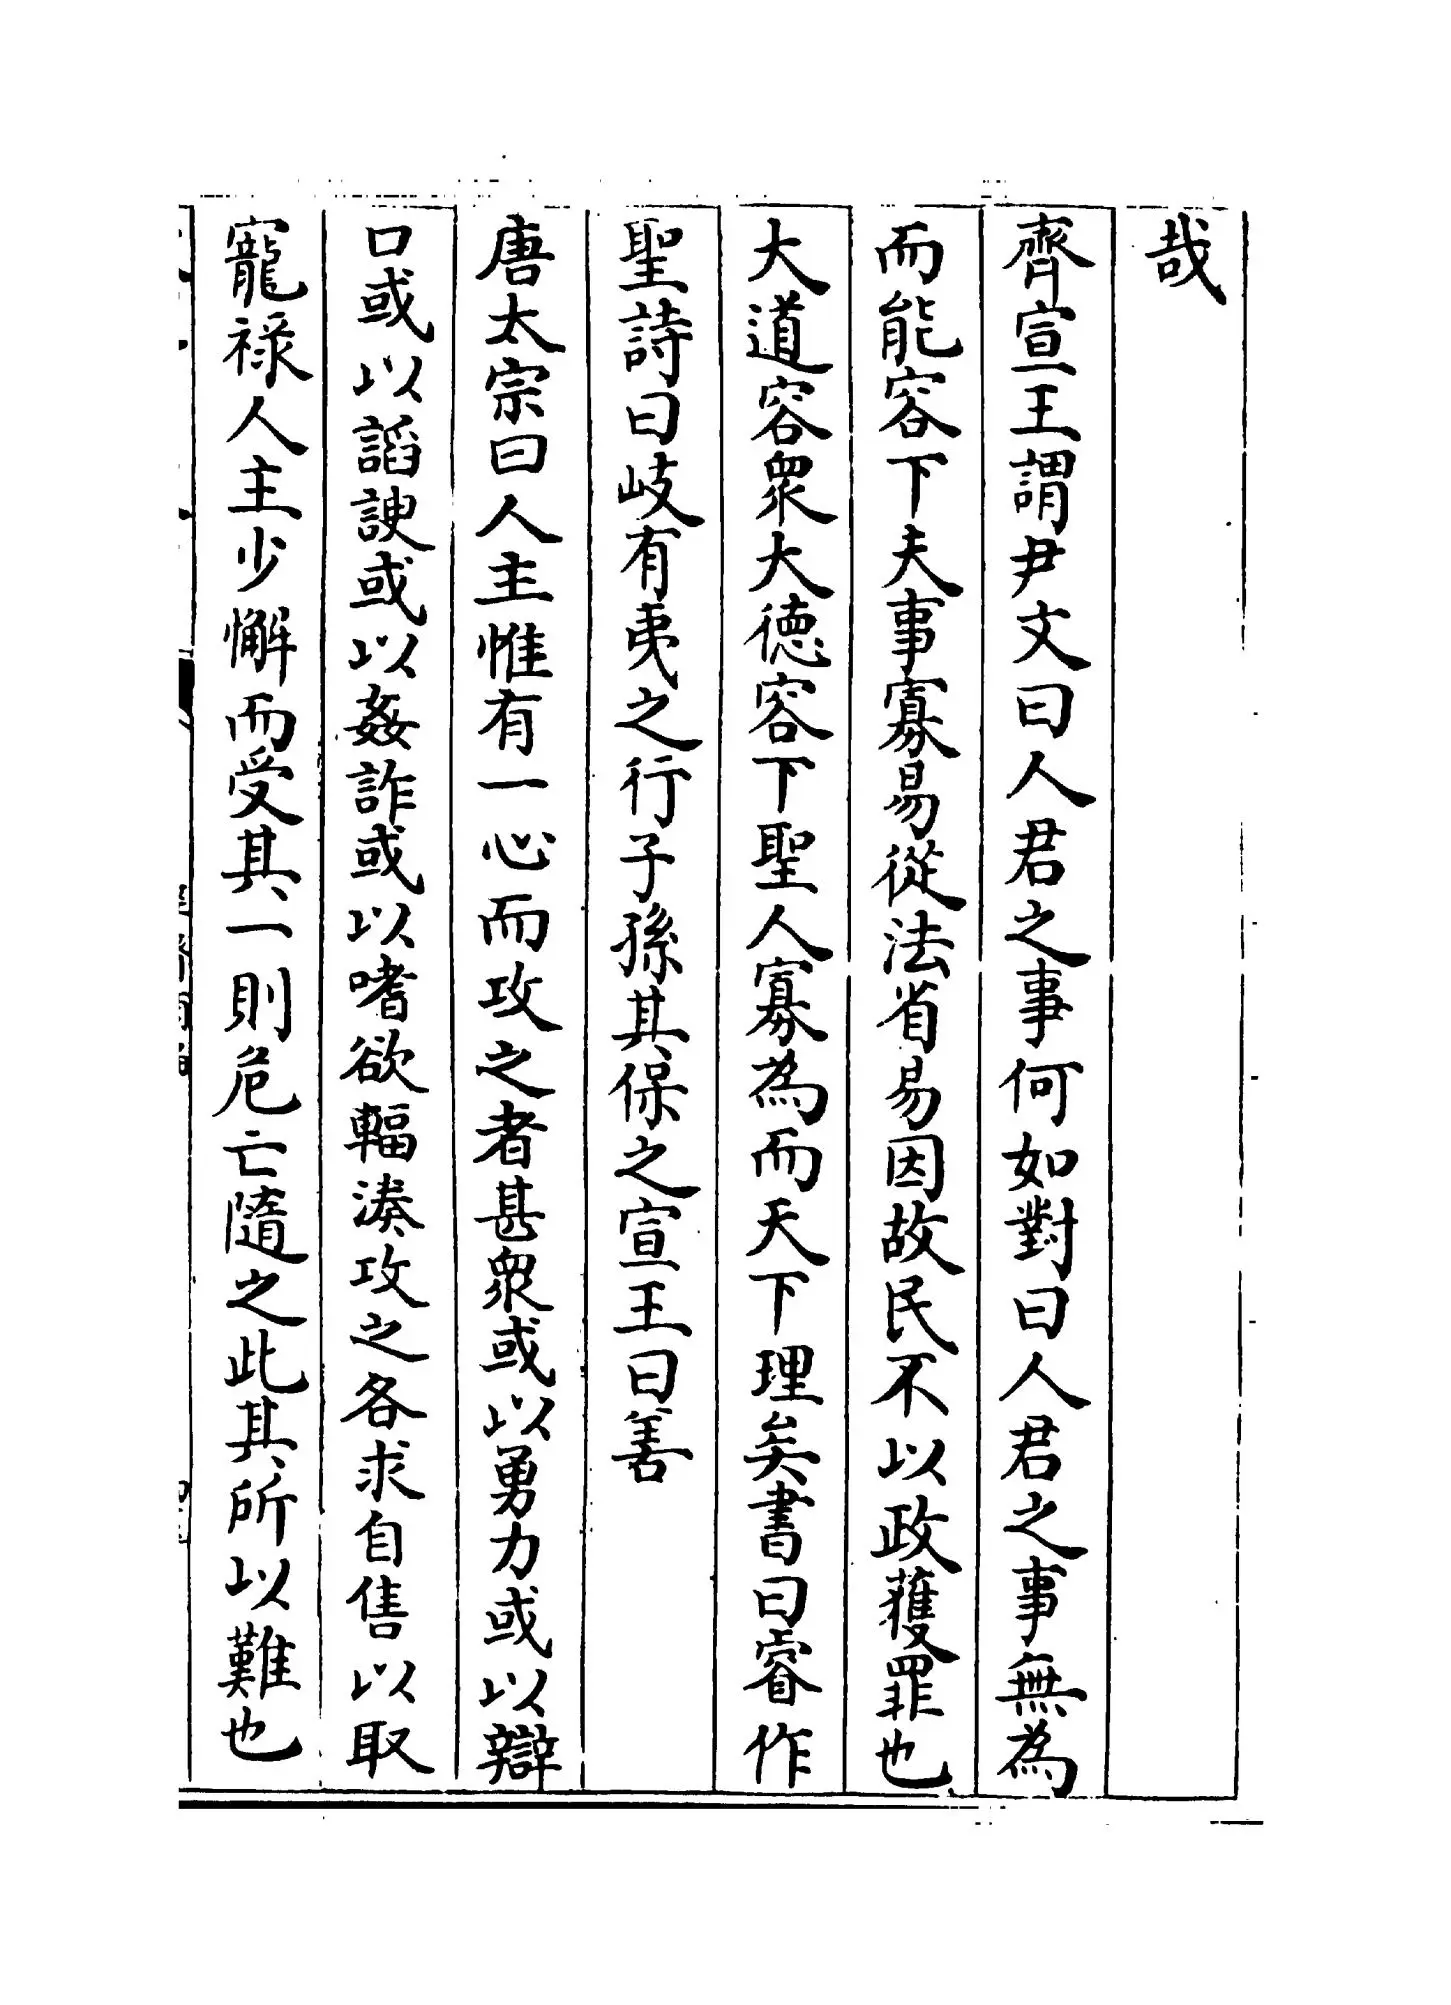 哉
齊宣王謂尹文曰人君之事何如對曰人君之事無為
而能容下夫事寡易從法省易因故民不以政獲罪也
大道容衆大德容下聖人寡為而天下理矣書曰睿作
聖詩曰岐有夷之行子孫其保之宣王曰善
唐太宗曰人主惟有一心而攻之者甚衆或以勇力或以辯
口或以謟諛或以姦詐或以嗜欲輻湊攻之各求自售以取
寵祿人主少懈而受其一則危亡隨之此其所以難也